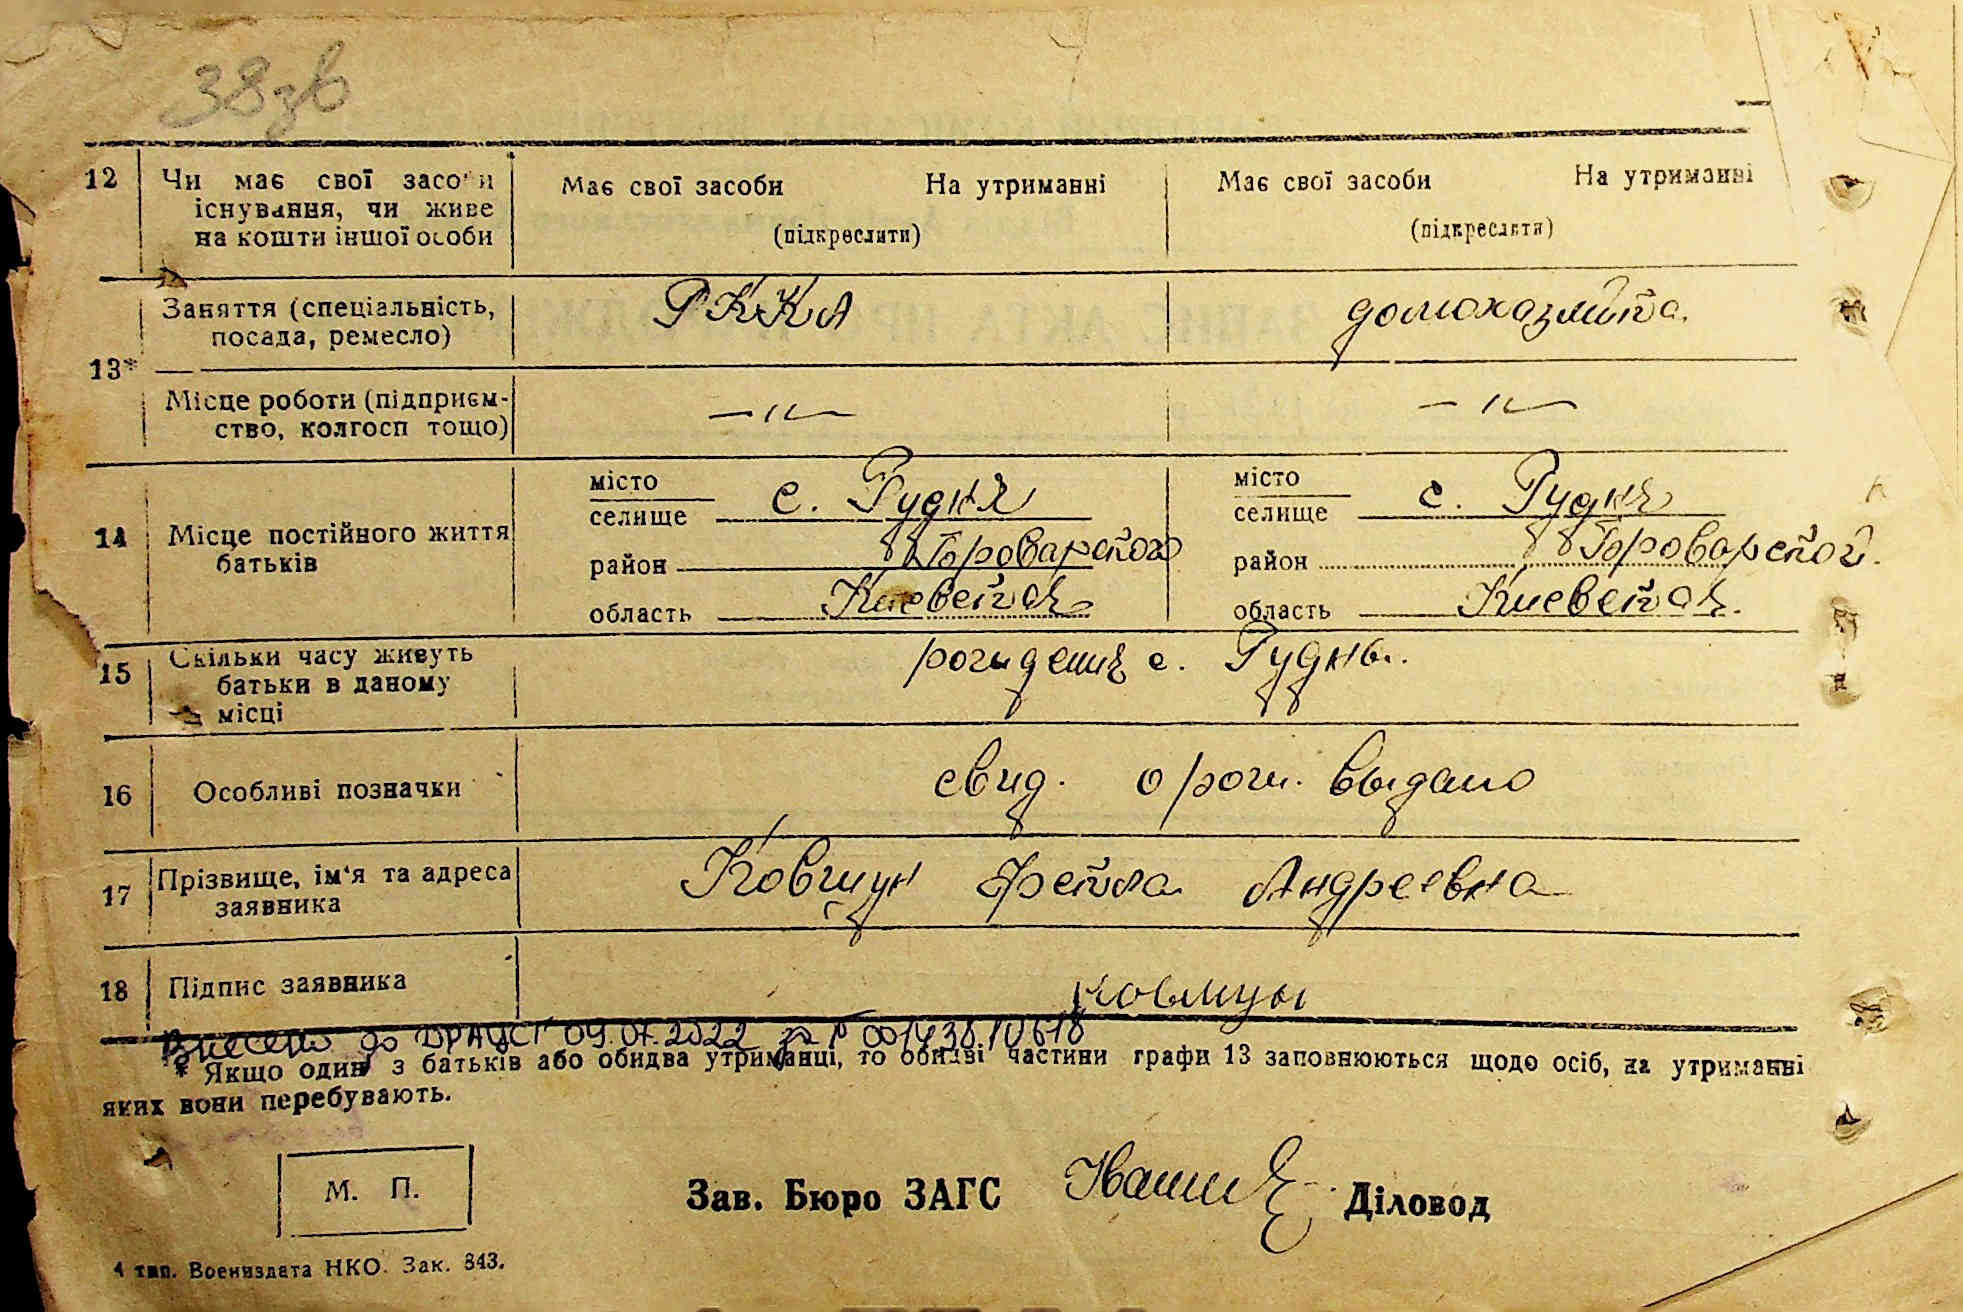 38зв
12 Чи має свої засоби Має свої засоби На утриманні Має свої засоби На утриманні
існування, чи живе
на кошти іншої особи (підкреслити) (підкреслити)
13* Заняття (спеціальність, РККА домохазяйка.
посада, ремесло)
Місце роботи (підприєм- —〃— —〃—
ство, колгосп тощо)
14 Місце постійного життя батьків
місто
селище с. Рудня
район Броварского
область Киевская
місто
селище с. Рудня
район Броварской.
область Киевская.
15 Скільки часу живуть рождения с. Рудня.
батьки в даному
місці
16 Особливі позначки свид. о рож. выдано
17 Прізвище, ім'я та адреса Ковшун Фекла Андреевна
заявника
18 Підпис заявника Ковшун
Внесено до ДРАЦСГ 09.07.2022 за № 00143810618
* Якщо один з батьків або обидва утриманці, то обидві частини графи 13 заповнюються щодо осіб, на утриманні
яких вони перебувають.
М. П.
Зав. Бюро ЗАГС Діловод
4 тип. Воениздата НКО. Зак. 843.